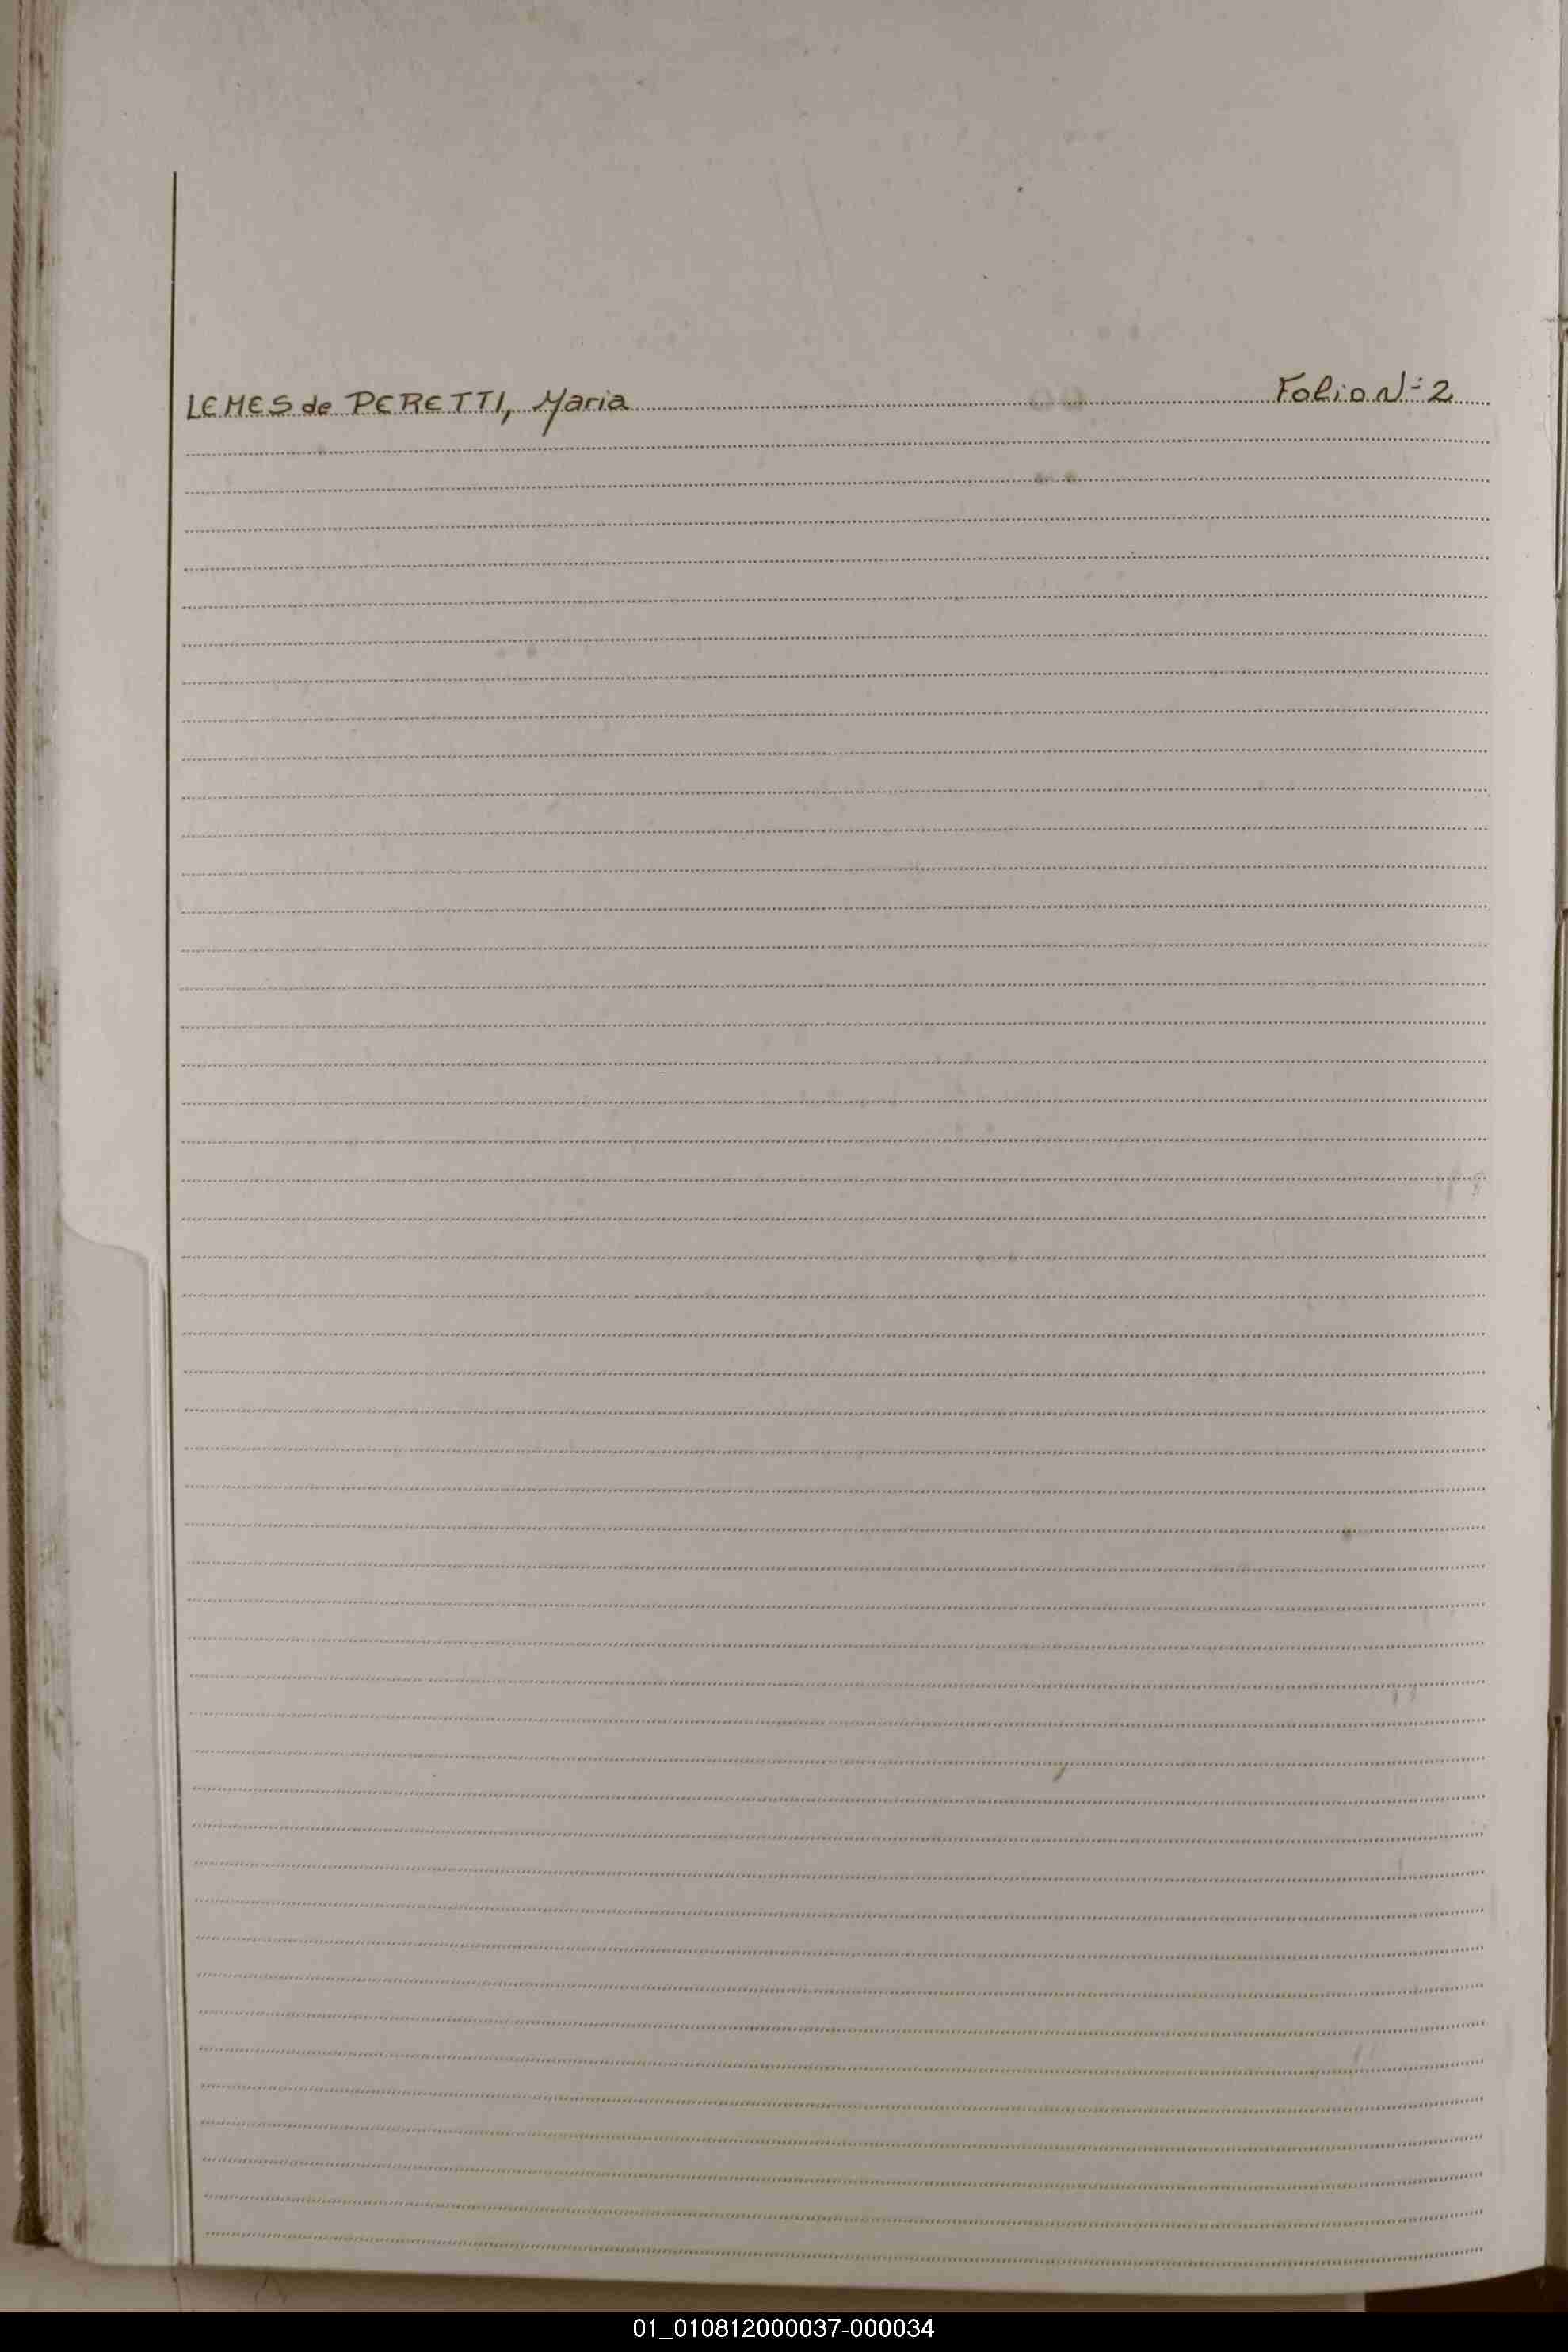 LEMES de PERETTI, Maria Folio Nº 2
01_010812000037-000034